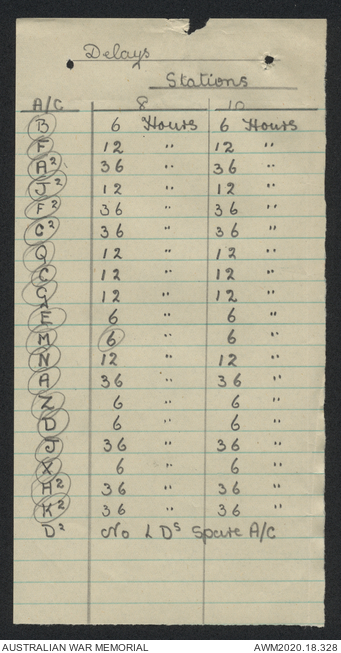 Delays
Stations
A/C 8 10
B 6 Hours 6 Hours
F 12 " 12 "
A² 36 " 36 "
J² 12 " 12 "
F² 36 " 36 "
C² 36 " 36 "
Q 12 " 12 "
C 12 " 12 "
G 12 " 12 "
E 6 " 6 "
M 6 " 6 "
N 12 " 12 "
A 36 " 36 "
Z 6 " 6 "
D 6 " 6 "
J 36 " 36 "
X 6 " 6 "
H² 36 " 36 "
K² 36 " 36 "
D² No LDs Spare A/C
AUSTRALIAN WAR MEMORIAL AWM2020.18.328